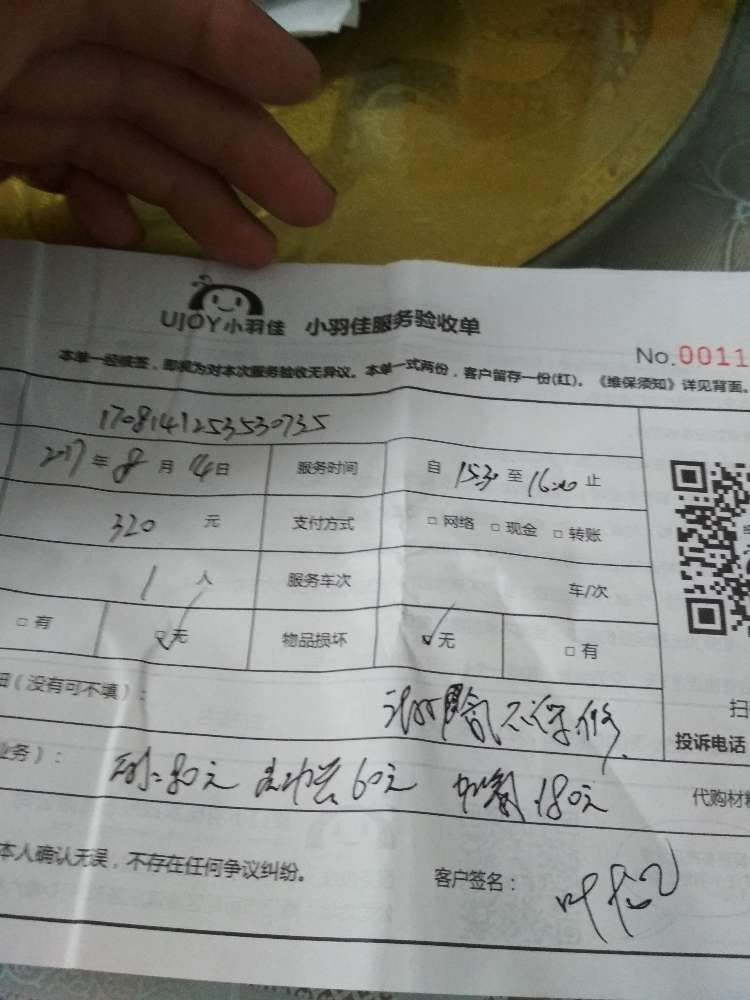 UJOY小羽佳 小羽佳服务验收单
No.0011
本单一经核签，即视为对本次服务验收无异议。本单一式两份，客户留存一份(红)。《维保须知》详见背面。
1708141253530735
2017年8月14日 服务时间 自15:30至16:00止
320元 支付方式 □网络 □现金 □转账
1人 服务车次 车/次
□有 ☑无 物品损坏 ☑无 □有
(没有可不填)：
不保修
扫
投诉电话
业务)： 80元 60元 加氟180元
代购材料
本人确认无误，不存在任何争议纠纷。 客户签名：叶